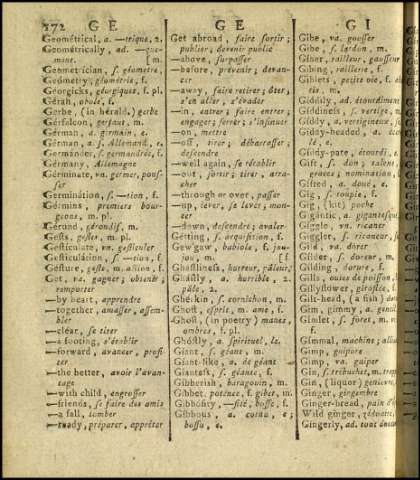 272 G E
Geométrical, a. —trique, 2.
Geométrically, ad. —que-
ment. [m.
Geometrician, s. géometre,
Geómetry, géométrie, f.
Géorgicks, géorgiques, f. pl.
Gérah, obole, f.
Gerbe, (in herald.) gerbe
Gérfalcon, gerfaut, m.
Gérman, a. germain, e.
Gérman, a. s. Allemand, e.
Germánder, s. germandrée, f.
Gérmany, Allemagne
Gérminate, vn. germer, pous-
ser
Germinátion, s. —tion, f.
Gérmins, premiers bour-
geons, m. pl.
Gérund, gérondif, m.
Gests, gestes, m. pl.
Gesticulate, vn. gesticuler
Gesticulátion, s. —tion, f.
Gésture, geste, m. action, f.
Get, va. gagner; obtenir;
remporter
—by heart, apprendre
—together, amasser, assem-
bler
—clear, se tirer
—a footing, s'établir
—forward, avancer, profi-
ter
—the better, avoir l'avan-
tage
—with child, engrosser
—friends, se faire des amis
—a fall, tomber
—ready, préparer, apprêter
G E
Get abroad, faire sortir;
publier; devenir public
—above, surpasser
—before, prévenir; devan-
cer
—away, faire retirer; ôter;
s'en aller; s'évader
—in, entrer; faire entrer;
engager; serrer; s'insinuer
—on, mettre
—off, tirer; débarrasser;
descendre
—well again, se rétablir
—out, sortir; tirer, arra-
cher
—through or over, passer
—up, lever, se lever; mon-
ter
—down, descendre; avaler
Getting, s. acquisition, f.
Gewgaw, babiole, f. jou-
jou, m. [f.
Ghastliness, horreur, pâleur,
Ghástly, a. horrible, 2.
pâle, 2.
Ghérkin, s. cornichon, m.
Ghost, esprit, m. ame, f.
Ghost, (in poetry) manes,
ombres, f. pl.
Ghóstly, a. spirituel, le.
Giant, s. géant, m.
Giant-like, a. de géant
Giantess, s. géante, f.
Gibberish, baragouin, m.
Gibbet, potence, f. gibet, m.
Gibbósity, —sité, bosse, f.
Gibbous, a. convexe, e;
bossu, e.
G I
Gibe, va. gausser
Gibe, s. lardon, m.
Giber, railleur, gausseur
Gibing, raillerie, f.
Giblets, petite oie, f.
m.
Giddily, ad. étourdiment
Giddiness, s. vertige, m.
Giddy, a. vertigineux,
Giddy-headed, a.
lé, e
Giddy-pate, étourdi, e.
Gift, s. don; talent,
graces; nomination,
Gifted, a. doué, e.
Gig, s. toupie, f.
Gig, (kit) poche
Gigántic, a. gigantesque,
Giggle, vn. ricaner
Giggler, s. ricaneur,
Gild, va. dorer
Gilder, s. doreur, m.
Gilding, dorure, f.
Gills, ouies de poisson,
Gillyflower, giroflée, f.
Gilt-head, (a fish)
Gim, gimmy, a. gentil
Gimlet, s. foret, m.
f.
Gimmal, machine; alliance
Gimp, guipure
Gimp, va. guiper
Gin, s. trébuchet, m.
Gin, (liquor) genievre,
Ginger, gingembre
Ginger-bread, pain d'épice
Wild ginger, zédoaire,
Gingerly, ad. tout doucement